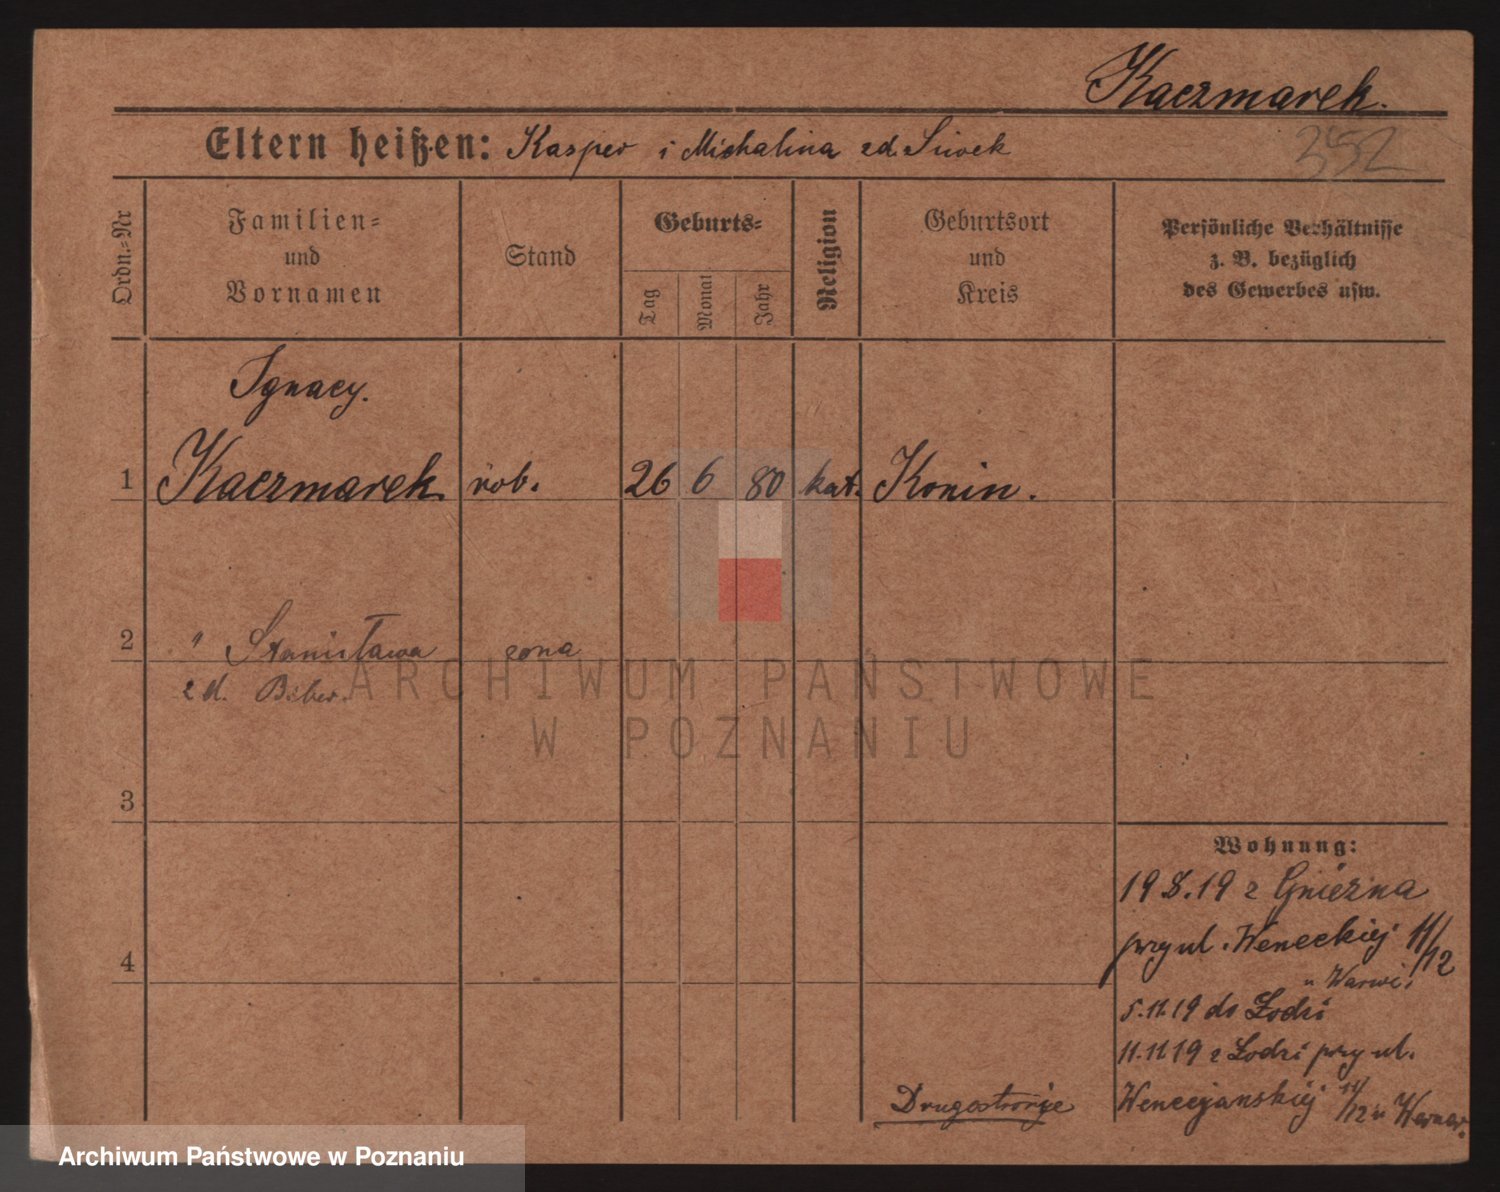 Kaczmarek.
Eltern heißen: Kasper i Michalina zd. Siwek
352
Ordn.=Nr
Familien=
und
Vornamen
Stand
Geburts=
Tag
Monat
Jahr
Religion
Geburtsort
und
Kreis
Persönliche Verhältnisse
z. B. bezüglich
des Gewerbes usw.
Ignacy.
1 Kaczmarek rob. 26 6 80 kat. Konin.
2 " Stanisława żona
zd. Biber.
ARCHIWUM PAŃSTWOWE
W POZNANIU
3
Wohnung:
19 8. 19 z Gniezna
przy ul. Weneckiej 11/12
4
5.11.19 do Łodzi
11.11.19 z Łodzi przy ul.
Wenecjanskiej 11/12 u
Drugostronje
Archiwum Państwowe w Poznaniu